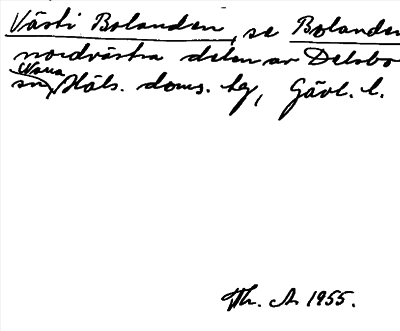 Västi Bolanden, se Bolanden
nordvästra delen av Delsbo
sn, Norra Häls. doms. tg, Gävl. l.
Th. A. 1955.